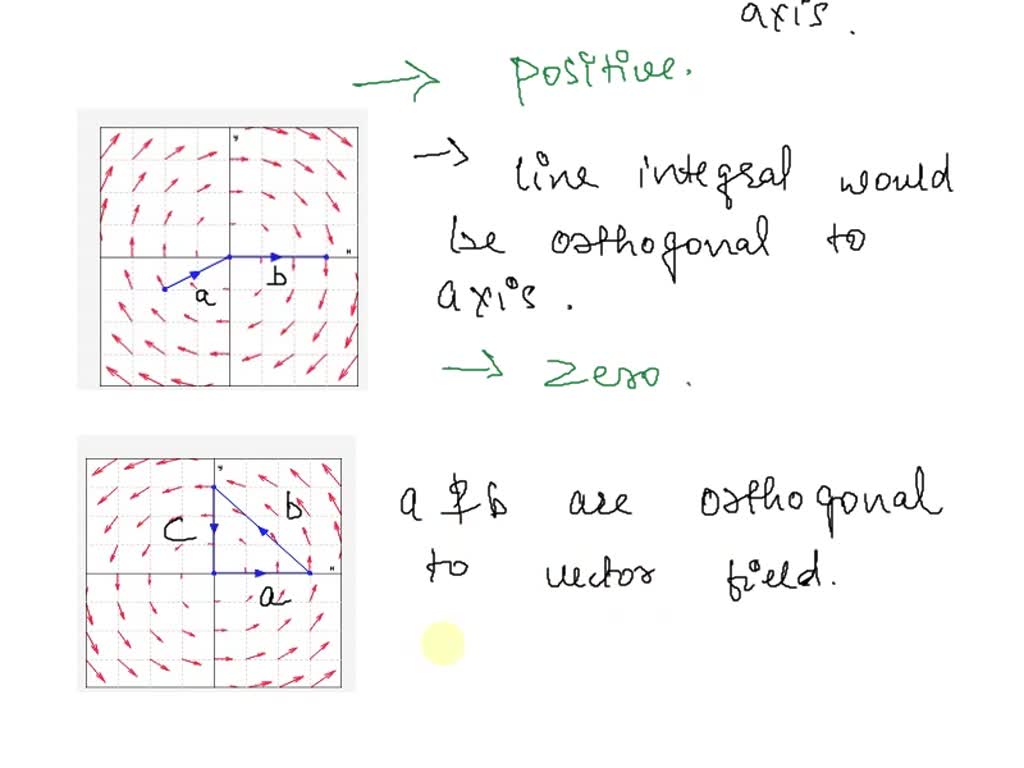 axis.
→ positive.
→ line integral would
be orthogonal to
axis.
→ zero.
y
x
a
b
y
x
a
b
c
a & b are orthogonal
to vector field.